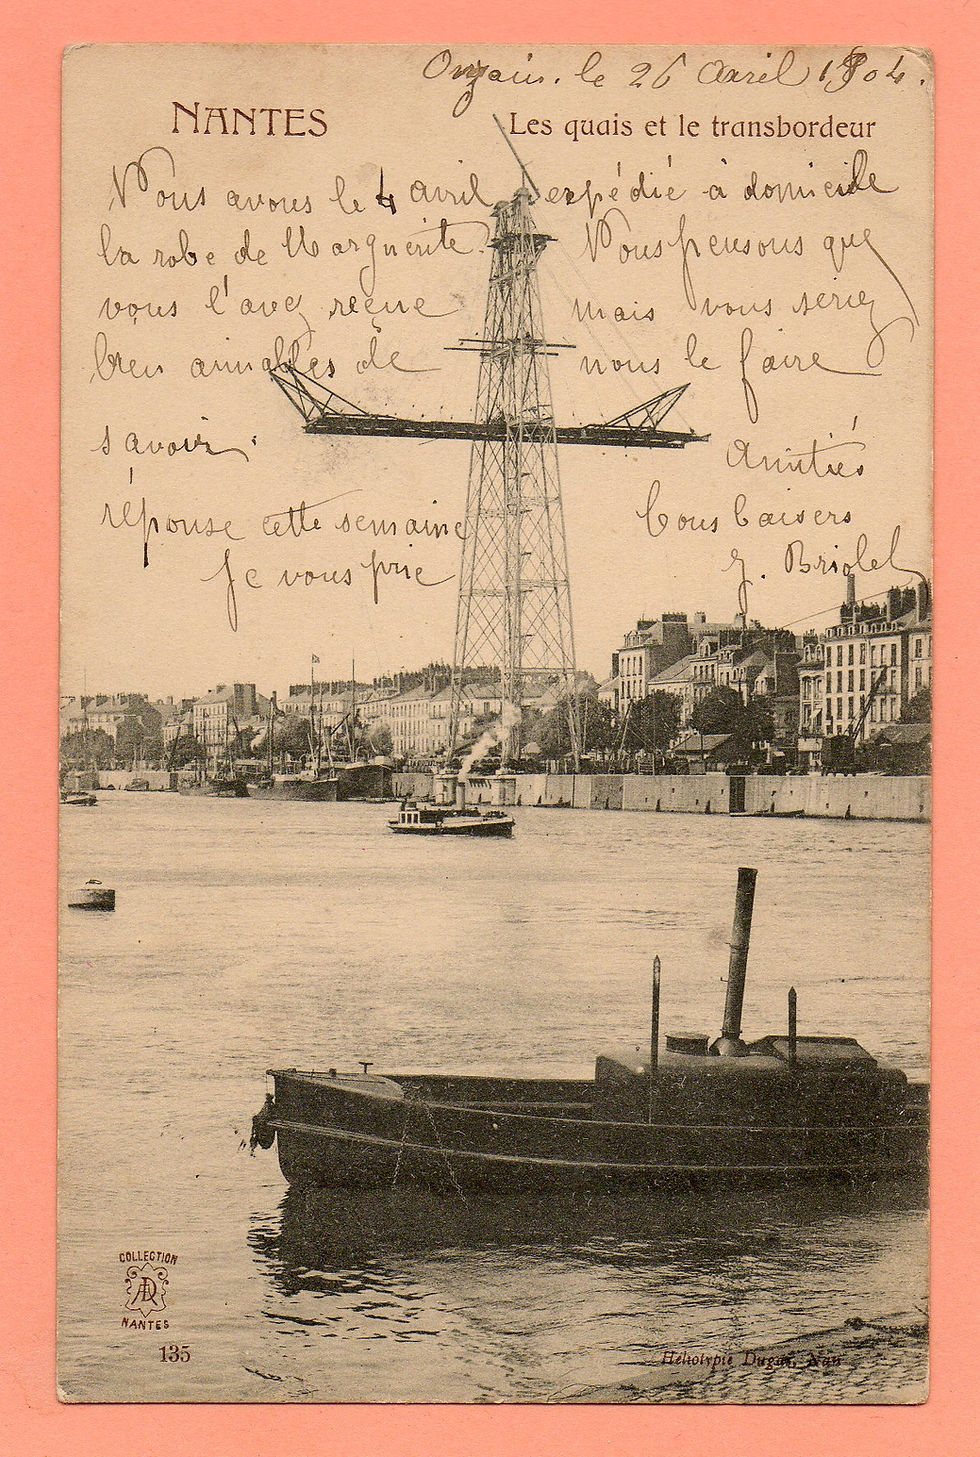 Onzain. le 26 Avril 1904.
NANTES
Les quais et le transbordeur
Nous avons le 4 avril expédié à domicile
la robe de Marguerite. Nous pensons que
vous l'avez reçue mais vous seriez
bien aimables de nous le faire
savoir.
Amitiés
réponse cette semaine
bons baisers
Je vous prie
J. Briolet
COLLECTION
AD
NANTES
135
Héliotypie Dugas, Nan